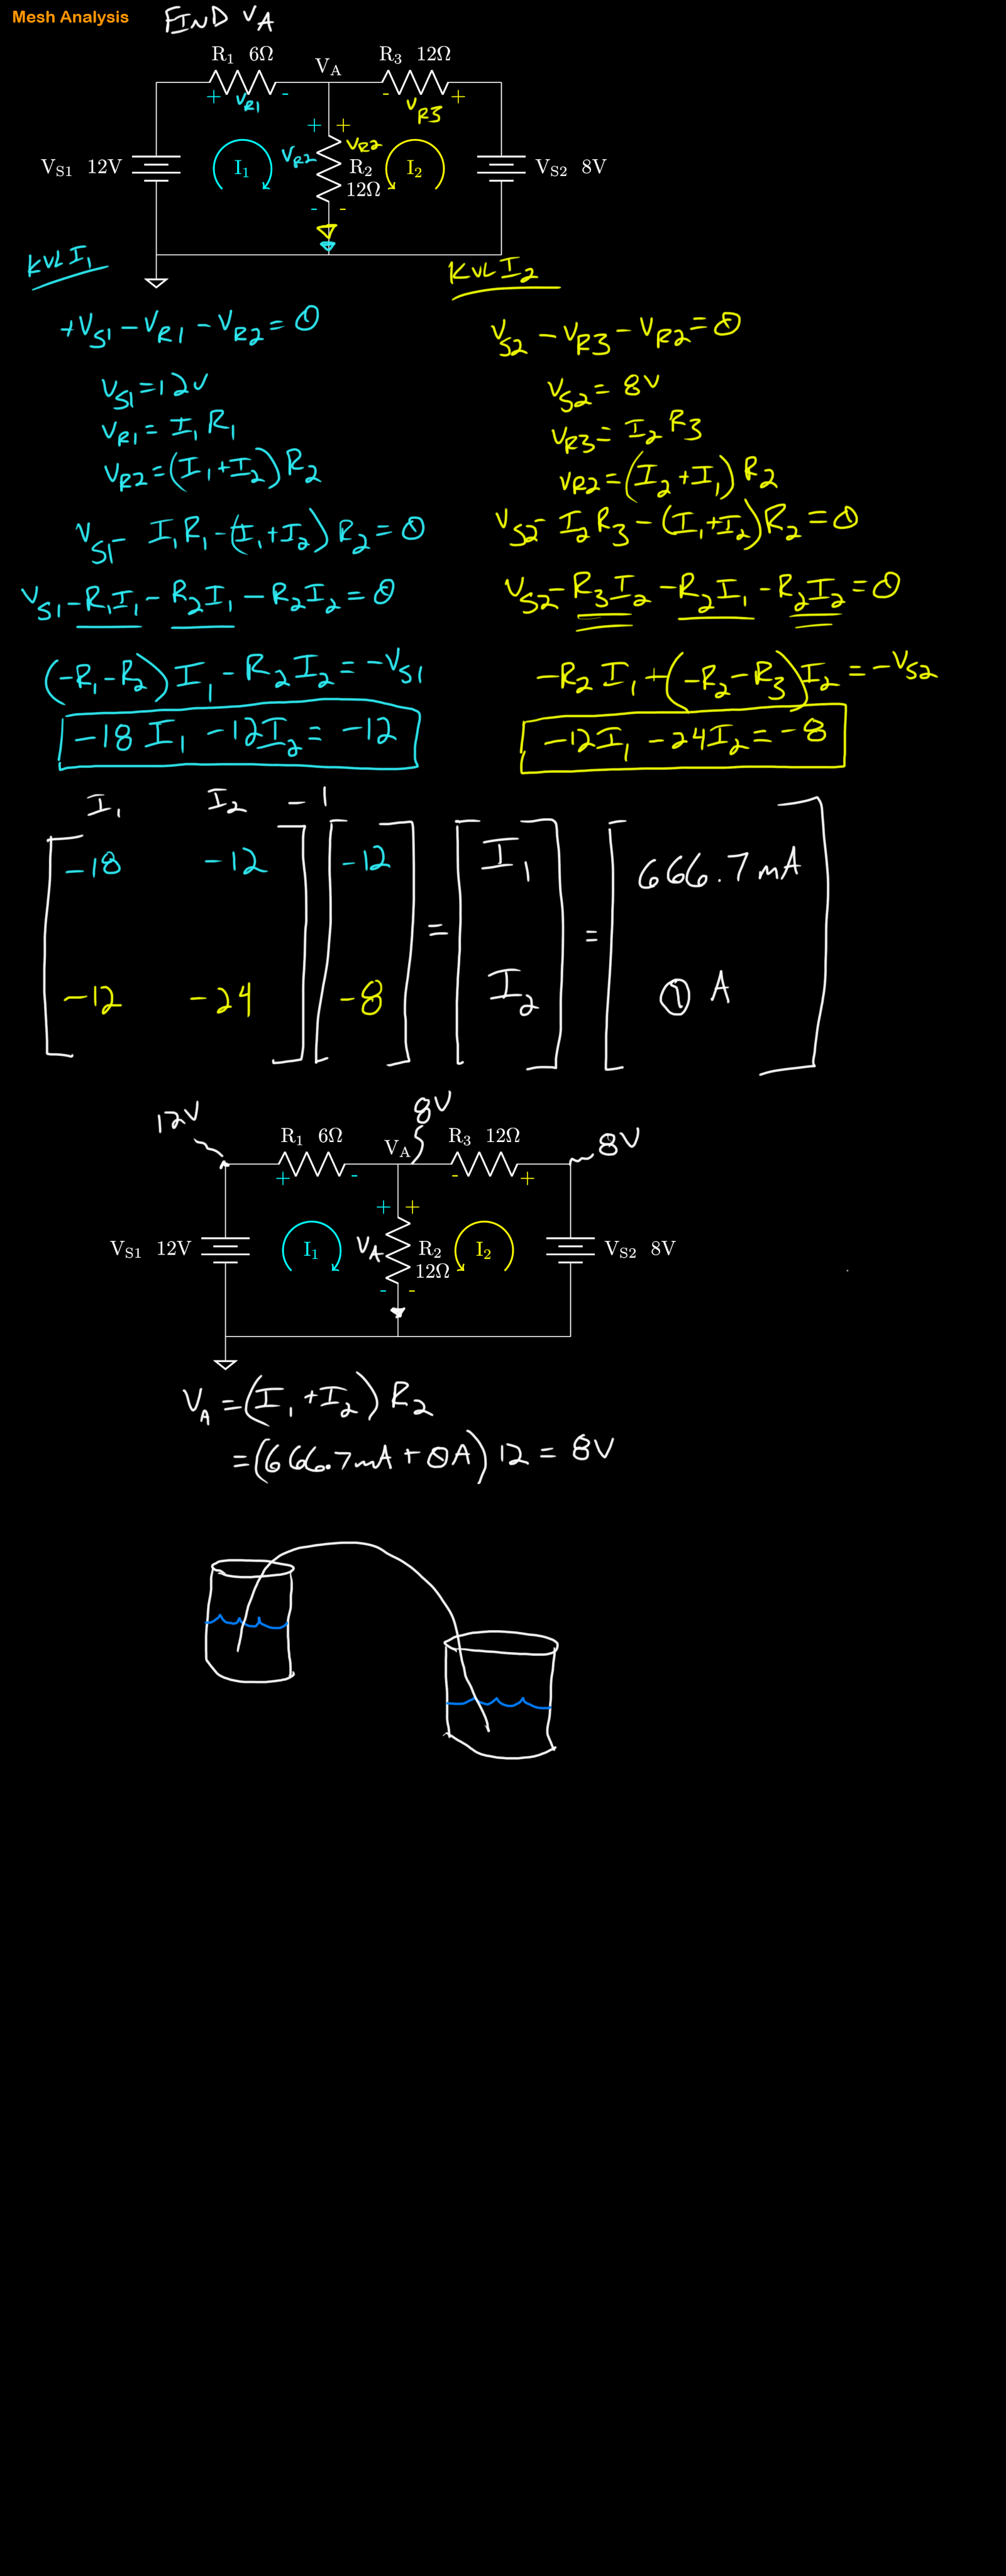 Mesh Analysis FIND VA
R1 6Ω VA R3 12Ω
+ VR1 - - VR3 +
+ +
VS1 12V I1 VR2 VR2 R2 12Ω I2 VS2 8V
- -
KVL I1
+VS1 - VR1 - VR2 = 0
VS1 = 12V
VR1 = I1 R1
VR2 = (I1 + I2) R2
VS1 - I1 R1 - (I1 + I2) R2 = 0
VS1 - R1I1 - R2I1 - R2I2 = 0
(-R1 - R2) I1 - R2 I2 = -VS1
-18 I1 - 12I2 = -12
KVL I2
VS2 - VR3 - VR2 = 0
VS2 = 8V
VR3 = I2 R3
VR2 = (I2 + I1) R2
VS2 - I2 R3 - (I1 + I2) R2 = 0
VS2 - R3I2 - R2I1 - R2I2 = 0
-R2 I1 + (-R2 - R3) I2 = -VS2
-12I1 - 24I2 = -8
I1 I2 -1
[-18 -12] [-12] = [I1] = [666.7 mA]
[-12 -24] [-8] [I2] [0 A]
12V 8V
R1 6Ω VA R3 12Ω 8V
+ - - +
+ +
VS1 12V I1 VA R2 12Ω I2 VS2 8V
- -
VA = (I1 + I2) R2
= (666.7mA + 0A) 12 = 8V